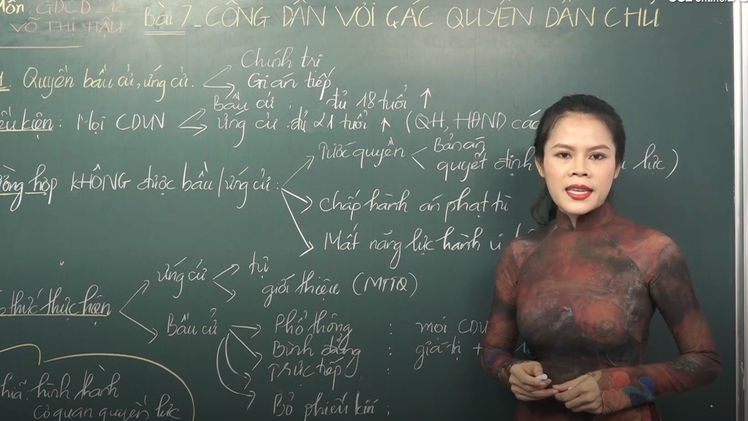 Môn: GDCD_12
VÕ THỊ HẬU
Bài 7_CÔNG DÂN VỚI CÁC QUYỀN DÂN CHỦ
1. Quyền bầu cử, ứng cử.
Chính trị
Gián tiếp
kiện: Mọi CDVN
Bầu cử: đủ 18 tuổi ↑
Ứng cử: đủ 21 tuổi ↑ (QH, HĐND các
hợp KHÔNG được bầu/ứng cử:
Tước quyền
Bản án
quyết định lực)
Chấp hành án phạt tù
Mất năng lực hành vi
thức thực hiện
ứng cử
tự
giới thiệu (MTTQ)
Bầu cử
Phổ thông : mọi CDV
Bình đẳng : giá trị
trực tiếp :
Bỏ phiếu kín :
hình thành
cơ quan quyền lực